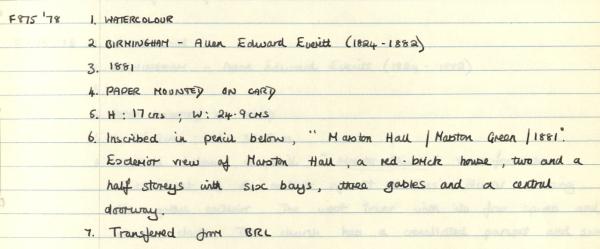 F875 '78 1. WATERCOLOUR
2. BIRMINGHAM - Allen Edward Everitt (1824-1882)
3. 1881
4. PAPER MOUNTED ON CARD
5. H: 17 cms ; W: 24.9 cms
6. Inscribed in pencil below, "Marston Hall / Marston Green / 1881".
Exterior view of Marston Hall, a red-brick house, two and a
half storeys with six bays, three gables and a central
doorway.
7. Transferred from BRL